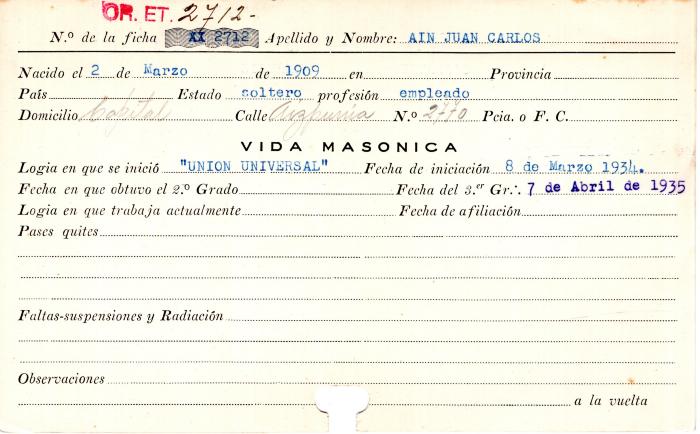 OR. ET. 2712-
N.º de la ficha XI 2712 Apellido y Nombre: AIN JUAN CARLOS
Nacido el 2 de Marzo de 1909 en Provincia
País Estado soltero profesión empleado
Domicilio Capital Calle Aizpurúa N.º 2770 Pcia. o F. C.
VIDA MASONICA
Logia en que se inició "UNION UNIVERSAL" Fecha de iniciación 8 de Marzo 1934.
Fecha en que obtuvo el 2.º Grado Fecha del 3.er Gr∴ 7 de Abril de 1935
Logia en que trabaja actualmente Fecha de afiliación
Pases quites
Faltas-suspensiones y Radiación
Observaciones
a la vuelta